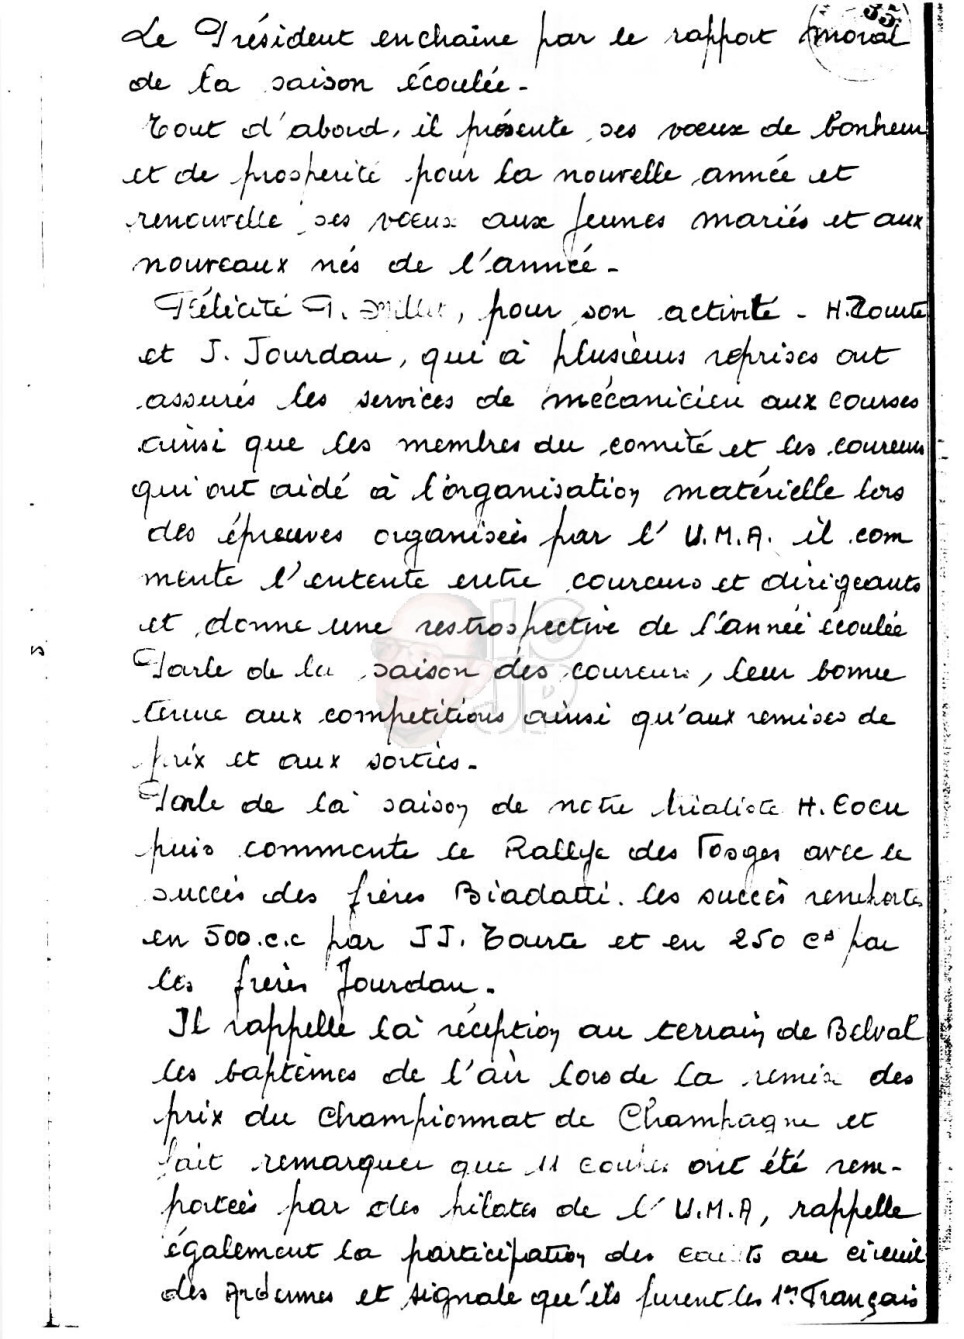 35
Le Président enchaine par le rapport moral
de la saison écoulée -
Tout d'abord, il présente ses vœux de bonheur
et de prosperité pour la nouvelle année et
renouvelle ses vœux aux jeunes mariés et aux
nouveaux nés de l'année -
Félicité P. Millet, pour son activité - H. Tourte
et J. Jourdan, qui à plusieurs reprises ont
assurés les services de mécanicien aux courses
ainsi que les membres du comité et les coureurs
qui ont aidé à l'organisation matérielle lors
des épreuves organiseés par l' U.M.A. il com
mente l'entente entre coureurs et dirigeants
et donne une restrospective de l'année écoulée
Parle de la saison des coureurs, leur bonne
tenue aux competitions ainsi qu'aux remises de
prix et aux sorties -
Parle de la saison de notre trialiste H. Cocu
puis commente le Rallye des Vosges avec le
succès des frères Biadatti. les succès remportes
en 500.c.c par JJ. Tourte et en 250 cc par
les frères Jourdan.
Il rappelle la réception au terrain de Belval
les baptêmes de l'air lors de la remise des
prix du championnat de Champagne et
fait remarquer que 11 coupes ont été rem-
porteés par des pilotes de l' U.M.A, rappelle
également la participation des au circuit
des Ardennes et signale qu'ils furent les 1er Français
LC
JP